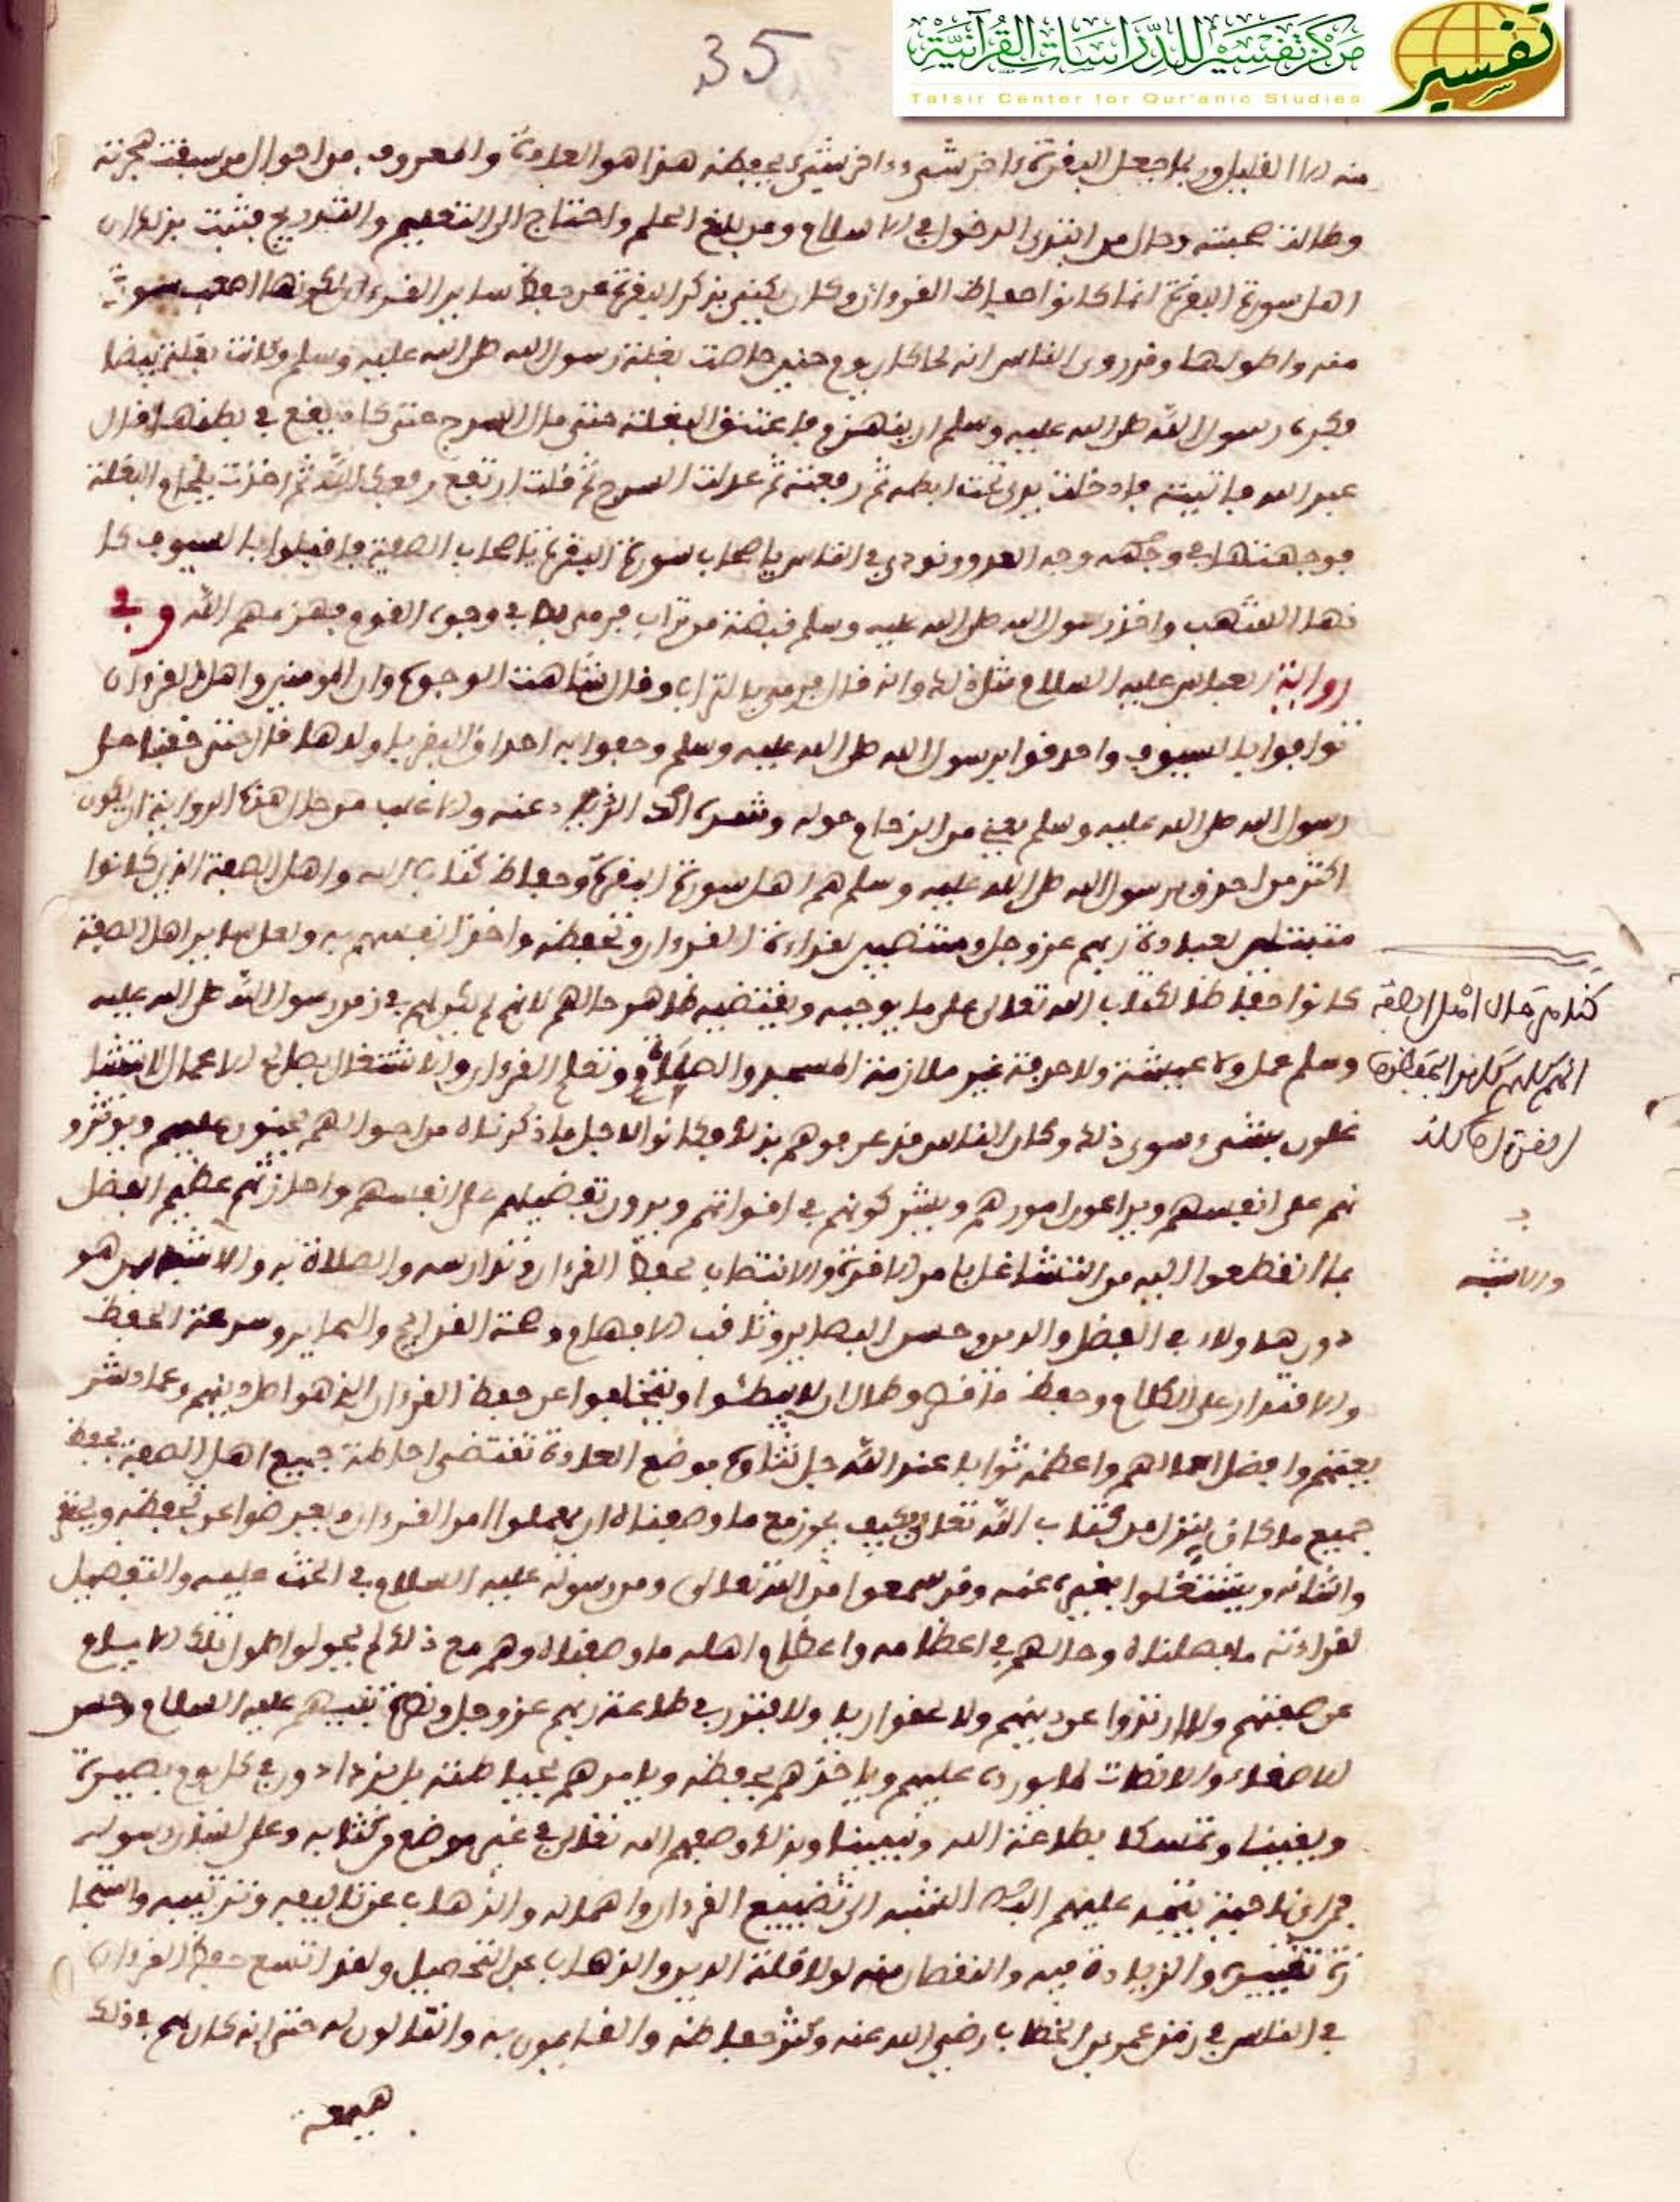 35
مركز تفسير للدراسات القرآنية
Tafsir Center for Qur'anic Studies
تفسير
منه الا القليل وربما جعل البقرة ءاخر شيء وءاخر شيء يحفظه هذا هو العادة والمعروف من احوال من سبقت هجرته
وطالت صحبته وحال من ابتدى الدخول في الاسلام ومن بلغ الحلم واحتاج الى التعليم والتدريج فثبت بذلك ان
اهل سورة البقرة انما كانوا حفاظ القرءان وكان يكنى بذكر البقرة عن حفظ ساير القرءان لكونها اصعب سورة
منه واطولها وقد روى الناس انه لما كان يوم حنين حاصت بغلة رسول الله صلى الله عليه وسلم وكانت بغلة بيضا
فكره رسول الله صلى الله عليه وسلم ان ينهزم فاعتنق البغلة حتى مال السرج حتى كاد يقع في بطنها قال
عبد الله فاتيته فادخلت يدي تحت ابطه ثم رفعته ثم عدلت السرج ثم قلت ارتفع رفعك الله ثم اخذت بلجام البغلة
فوجهتها في وجهه وجه العدو ونودي في الناس يا صحاب سورة البقرة يا صحاب الصفة فاقبلوا بالسيوف كا
نها الشهب واخذ رسول الله صلى الله عليه وسلم قبضة من تراب فرمى بها في وجوه القوم فهزمهم الله وفي
رواية العباس عليه السلام مثل ذلك وانه قال فرمى بالتراب وقال شاهت الوجوه وان المومنين واهل القرءان
توافوا بالسيوف واحدقوا برسول الله صلى الله عليه وسلم وحفوا به احداق البقر باولادها قال حتى خفنا على
رسول الله صلى الله عليه وسلم يعني من الزحام حوله وشدة الذياد عنه والاغلب من حال هذه الرواية ان يكون
اكثر من احدق برسول الله صلى الله عليه وسلم هم اهل سورة البقرة وحفاظ كتاب الله واهل الصفة الذين كانوا
متبتلين لعبادة ربهم عز وجل ومنتصبين لقراءة القرءان وتحفظه واخذ انفسهم به ولعل ساير اهل الصفة
كانوا حفاظا لكتاب الله تعالى على ما يوجبه ويقتضيه ظاهر حالهم لانهم لم يكن لهم في زمن رسول الله صلى الله عليه
وسلم عمل ولا عيشة ولا حرفة غير ملازمة المسجد والصلاة وتعلم القرءان والاشتغال بصالح الاعمال لا يتشا
غلون بشيء سوى ذلك وكان الناس قد عرفوهم بذلك فكانوا لاجل ما ذكرناه من احوالهم يحنون عليهم ويوثرو
نهم على انفسهم ويراعون امورهم ويشركونهم في اقواتهم ويرون تفضيلهم على انفسهم واحرازهم عظيم الفضل
بما انقطعوا اليه من التشاغل بامر الاخرة والانتصاب لحفظ القرءان وتدارسه والصلاة به والاشبه بمن هو
دون هاولاء في الفضل والدين وحسن البصاير وثاقب الافهام وصحة القرايح والنحايز وسرعة الحفظ
والاقتدار على الكلام وحفظ ما قصر وطال ان لا يبطئوا ويتخلفوا عن حفظ القرءان الذي هو اصل دينهم وعماد شر
يعتهم وافضل اعمالهم واعظمه ثوابا عند الله جل ثناوه فوضع العادة تقتضي احاطة جميع اهل الصفة بحفظ
جميع ما كان ينزل من كتاب الله تعالى فكيف يجوز مع ما وصفناه ان يهملوا امر القرءان ويعرضوا عن تحفظه
واتقانه ويشتغلوا بغيره عنه وقد سمعوا من الله تعالى ومن رسوله عليه السلام في الحث عليه والتفضيل
لقراءته ما وصفناه وحالهم في اعظامه واعظام اهله ما وصفناه وهم مع ذلك لم يحولوا طول تلك الايام
عن صفتهم ولا ارتدوا عن دينهم ولا عطوا ريا ولا فتور في طاعة ربهم عز وجل ونصرة نبيهم عليه السلام وحسن
الاصغاء والانصات لما يورده عليهم وياخذهم بحفظه ويامرهم بحياطته بل يزدادون في كل يوم بصيرة
ويقينا وتمسكا بطاعة الله وتبيينا وبذلك وصفهم الله تعالى في غير موضع من كتابه وعلى لسان رسوله
فمن اي ناحية يتجه عليهم التسبب الى تضييع القرءان واهماله والذهاب عن تاليفه وترتيبه واستجا
زة تغييره والزيادة فيه والنقصان منه لولا قلة الدين والذهاب عن التحصيل ولقد اتسع حفظ القرءان
في الناس في زمن عمر بن الخطاب رضي الله عنه وكثر حفاظه والقايمون به والتالون له حتى انه كان لهم في ذلك
كانوا
والاشبه